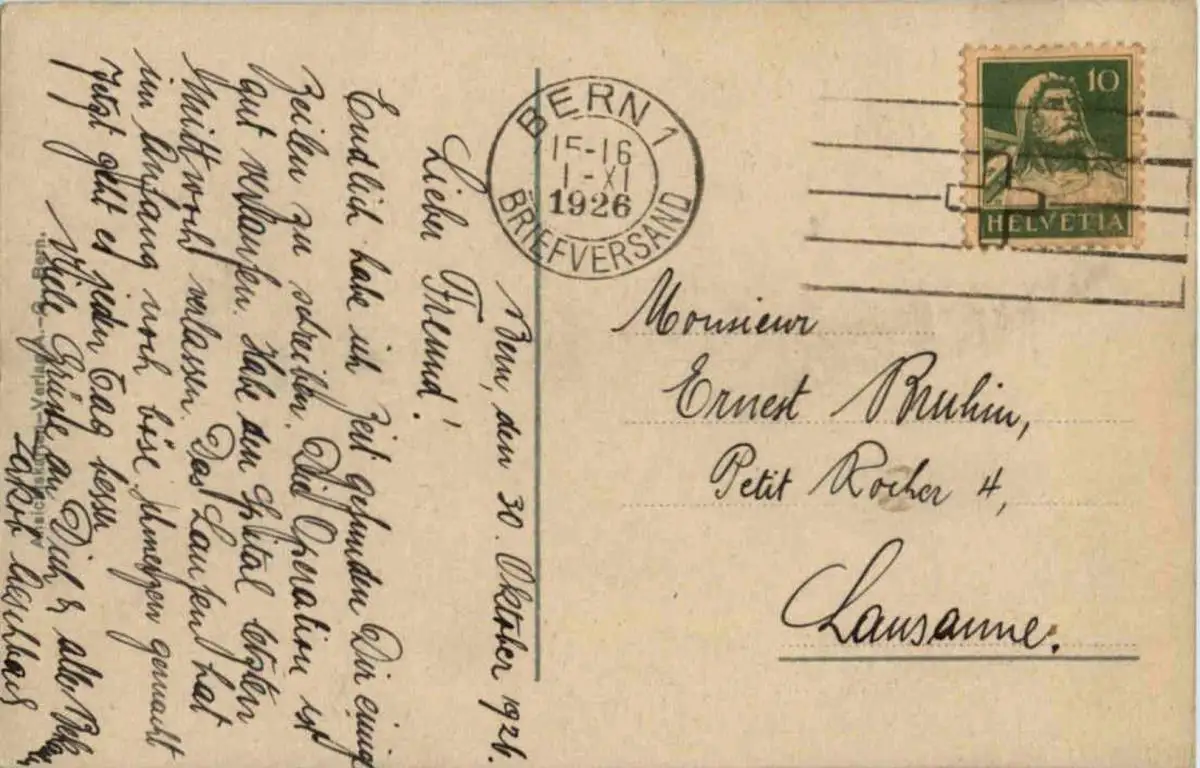 Bern, den 30. Oktober 1926.
Lieber Freund!
Endlich habe ich Zeit gefunden Dir einige
Zeilen zu schreiben. Die Operation ist
gut verlaufen. Habe den Spital letzten
Mittwoch verlassen. Das Laufen hat
im Anfang noch böse Schmerzen gemacht
Jetzt geht es jeden Tag besser
Viele Grüsse an Dich & alle
Jakob
BERN 1
15-16
1-XI
1926
BRIEFVERSAND
10
HELVETIA
Monsieur
Ernest Bruhin,
Petit Rocher 4,
Lausanne.